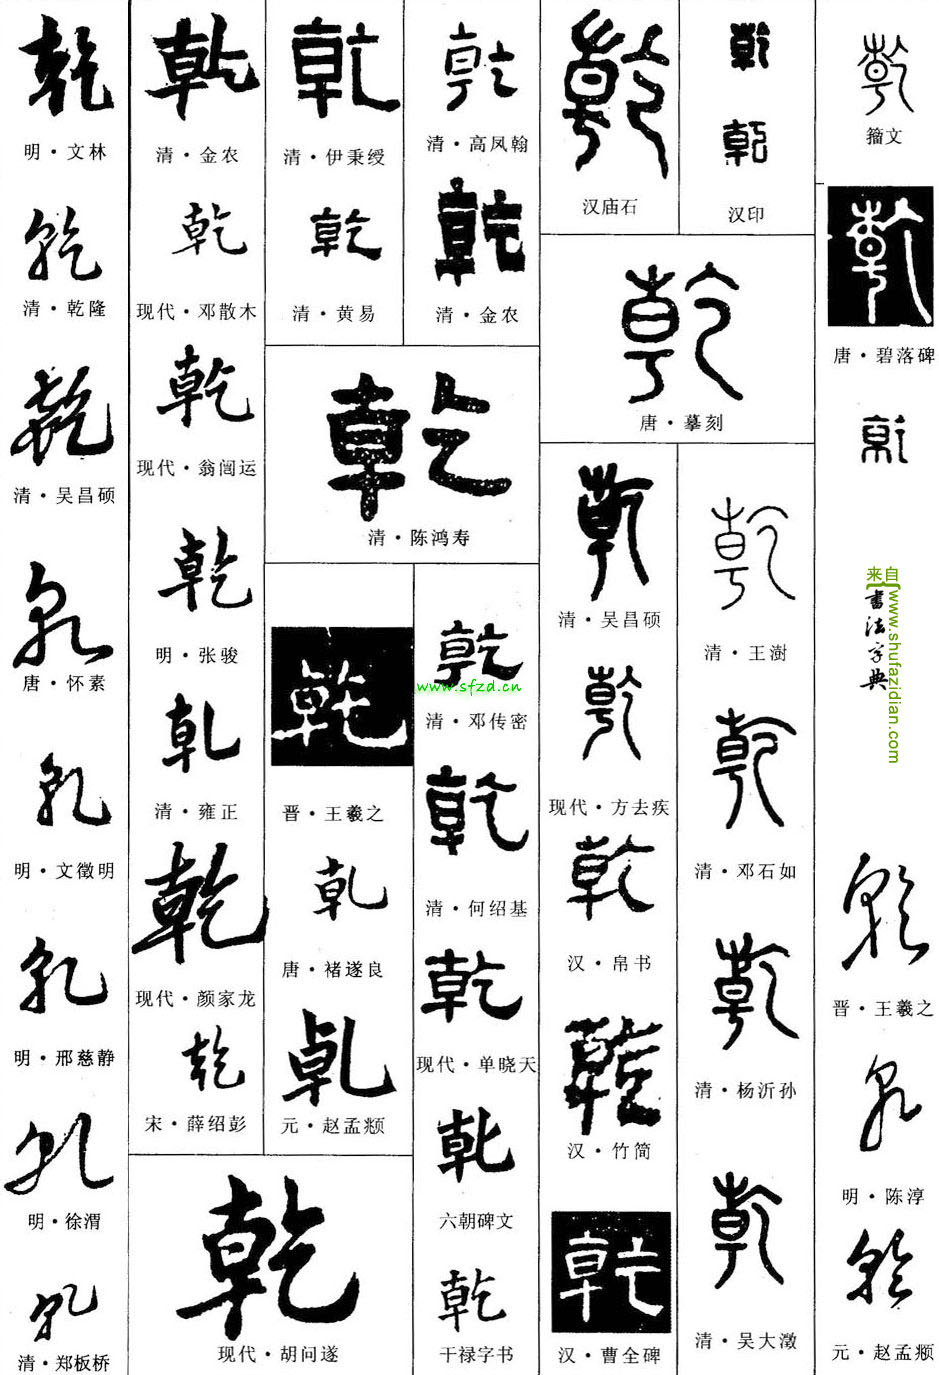 乾
籀文
乾
唐·碧落碑
乾
来自
書法字典
www.shufazidian.com
乾
晋·王羲之
乾
明·陈淳
乾
元·赵孟頫
乾
乾
汉印
乾
汉庙石
乾
唐·摹刻
乾
清·王澍
乾
清·邓石如
乾
清·杨沂孙
乾
清·吴大澂
乾
清·吴昌硕
乾
现代·方去疾
乾
汉·帛书
乾
汉·竹简
乾
汉·曹全碑
乾
清·高凤翰
乾
清·金农
乾
清·伊秉绶
乾
清·黄易
乾
清·陈鸿寿
乾
www.sfzd.cn
清·邓传密
乾
清·何绍基
乾
现代·单晓天
乾
六朝碑文
乾
干禄字书
乾
晋·王羲之
乾
唐·褚遂良
乾
元·赵孟頫
乾
清·金农
乾
现代·邓散木
乾
现代·翁闿运
乾
明·张骏
乾
清·雍正
乾
现代·颜家龙
乾
宋·薛绍彭
乾
现代·胡问遂
乾
明·文林
乾
清·乾隆
乾
清·吴昌硕
乾
唐·怀素
乾
明·文徵明
乾
明·邢慈静
乾
明·徐渭
乾
清·郑板桥